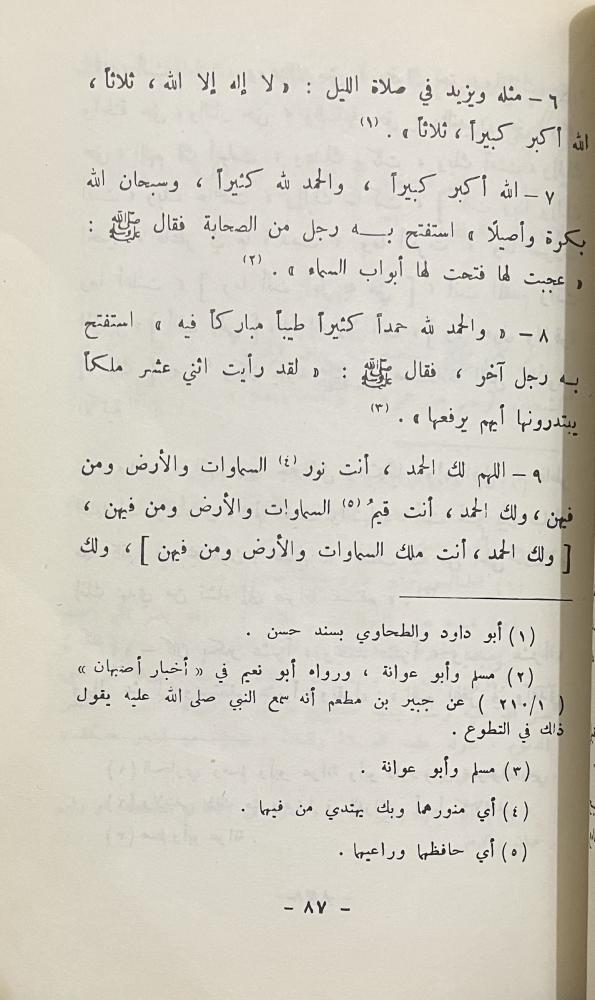 ٦ - مثله ويزيد في صلاة الليل : « لا إله إلا الله ، ثلاثاً ،
الله أكبر كبيراً ، ثلاثاً » . (١)
٧ - الله أكبر كبيراً ، والحمد لله كثيراً ، وسبحان الله
بكرة وأصيلًا » استفتح بـه رجل من الصحابة فقال ﷺ :
« عجبت لها فتحت لها أبواب السماء » . (٢)
٨ - « والحمد لله حمداً كثيراً طيباً مباركاً فيه » استفتح
به رجل آخر ، فقال ﷺ : « لقد رأيت اثني عشر ملكاً
يبتدرونها أيهم يرفعها » . (٣)
٩ - اللهم لك الحمد ، أنت نور (٤) السماوات والأرض ومن
فيهن ، ولك الحمد ، أنت قيمُ (٥) السماوات والأرض ومن فيهن ،
[ ولك الحمد ، أنت ملك السماوات والأرض ومن فيهن ] ، ولك
(١) أبو داود والطحاوي بسند حسن .
(٢) مسلم وأبو عوانة ، ورواه أبو نعيم في « أخبار أصبهان »
( ٢١٠/١ ) عن جبير بن مطعم أنه سمع النبي صلى الله عليه يقول
ذلك في التطوع .
(٣) مسلم وأبو عوانة .
(٤) أي منورهما وبك يهتدي من فيها .
(٥) أي حافظها وراعيها .
- ٨٧ -